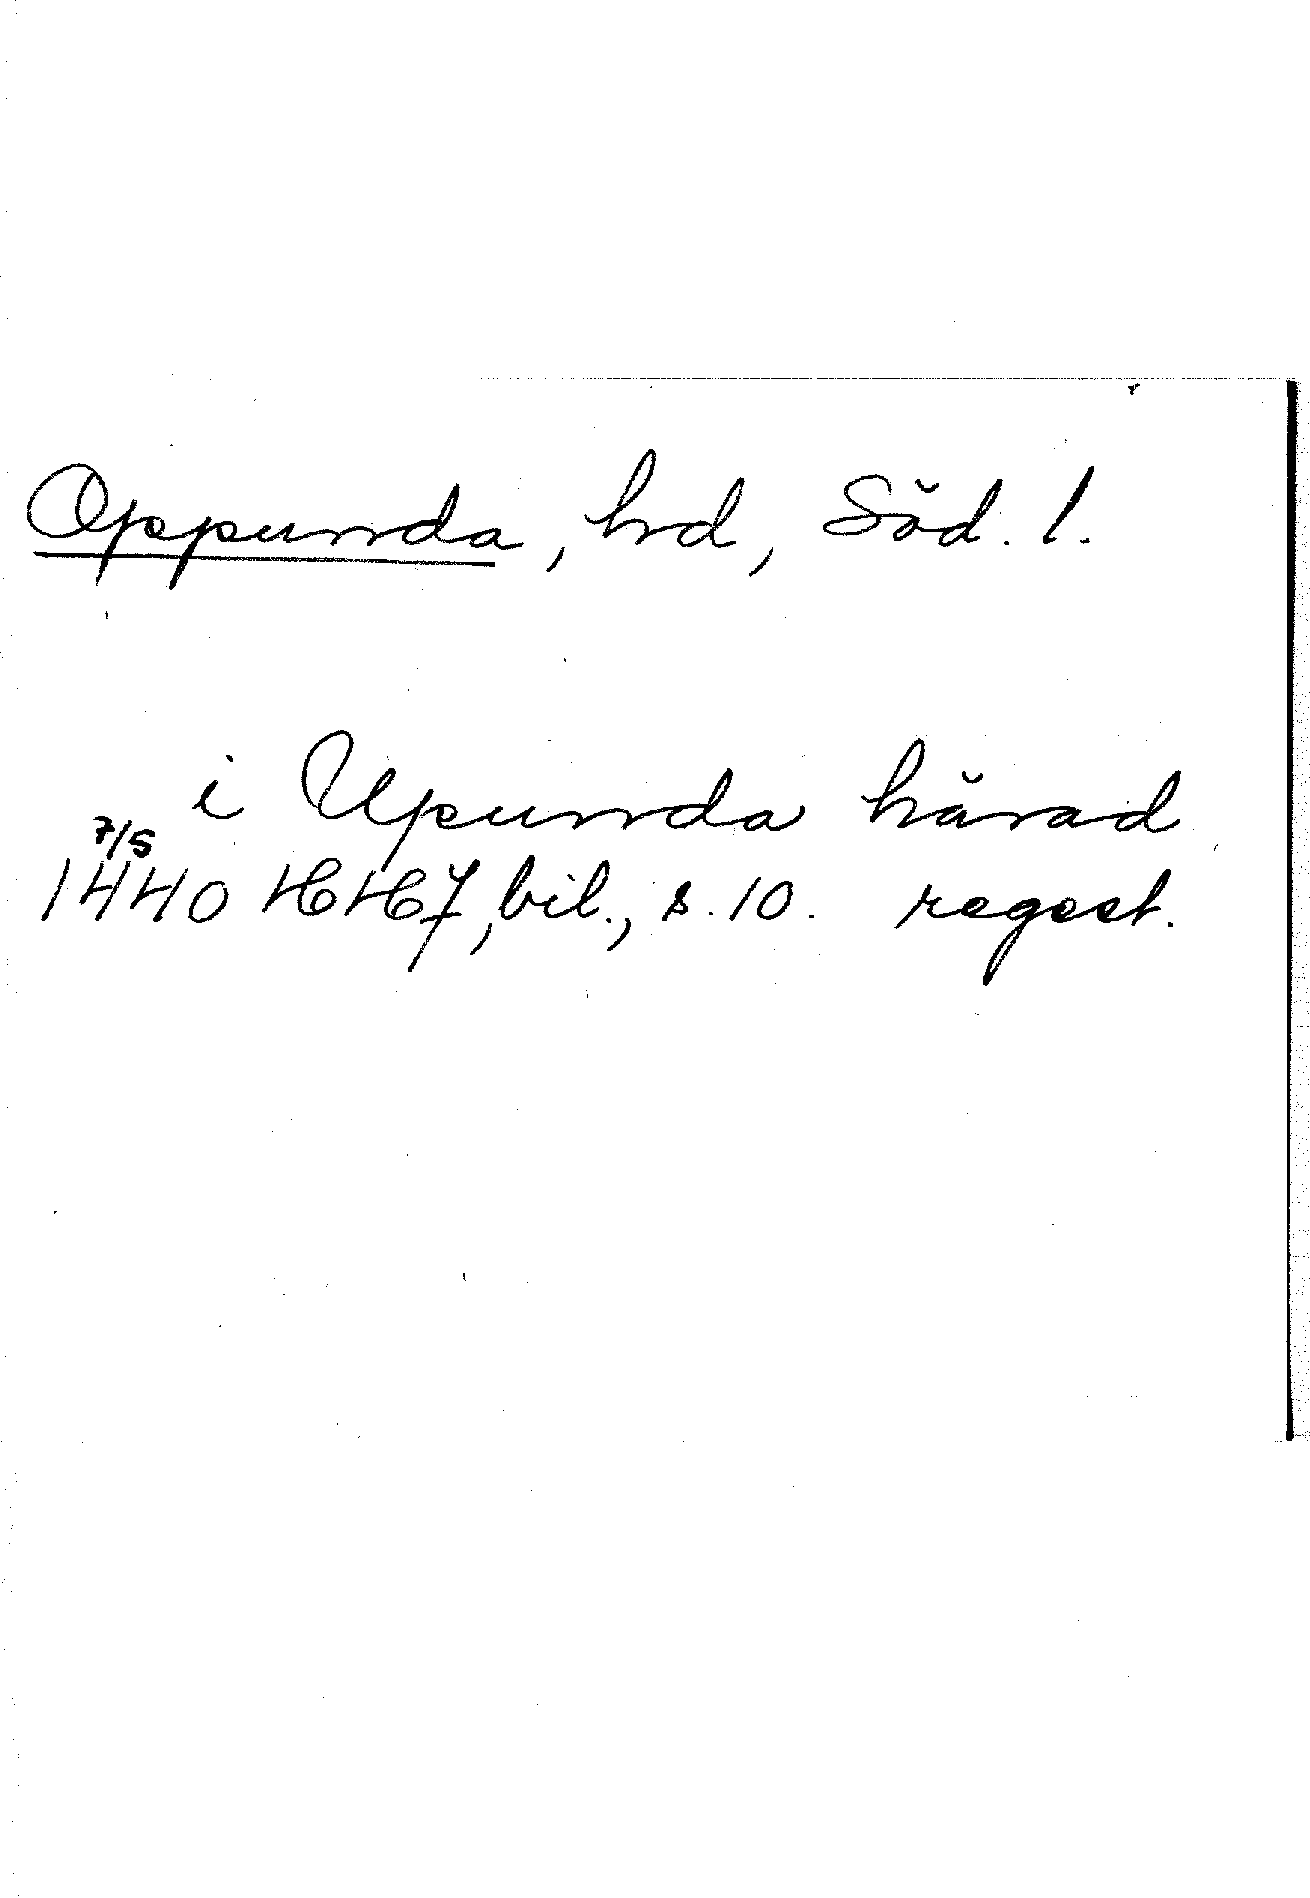 Oppunda, hd, Söd. l.
i Upunda härad
7/5
1440 HH 7, bil., s. 10. regest.